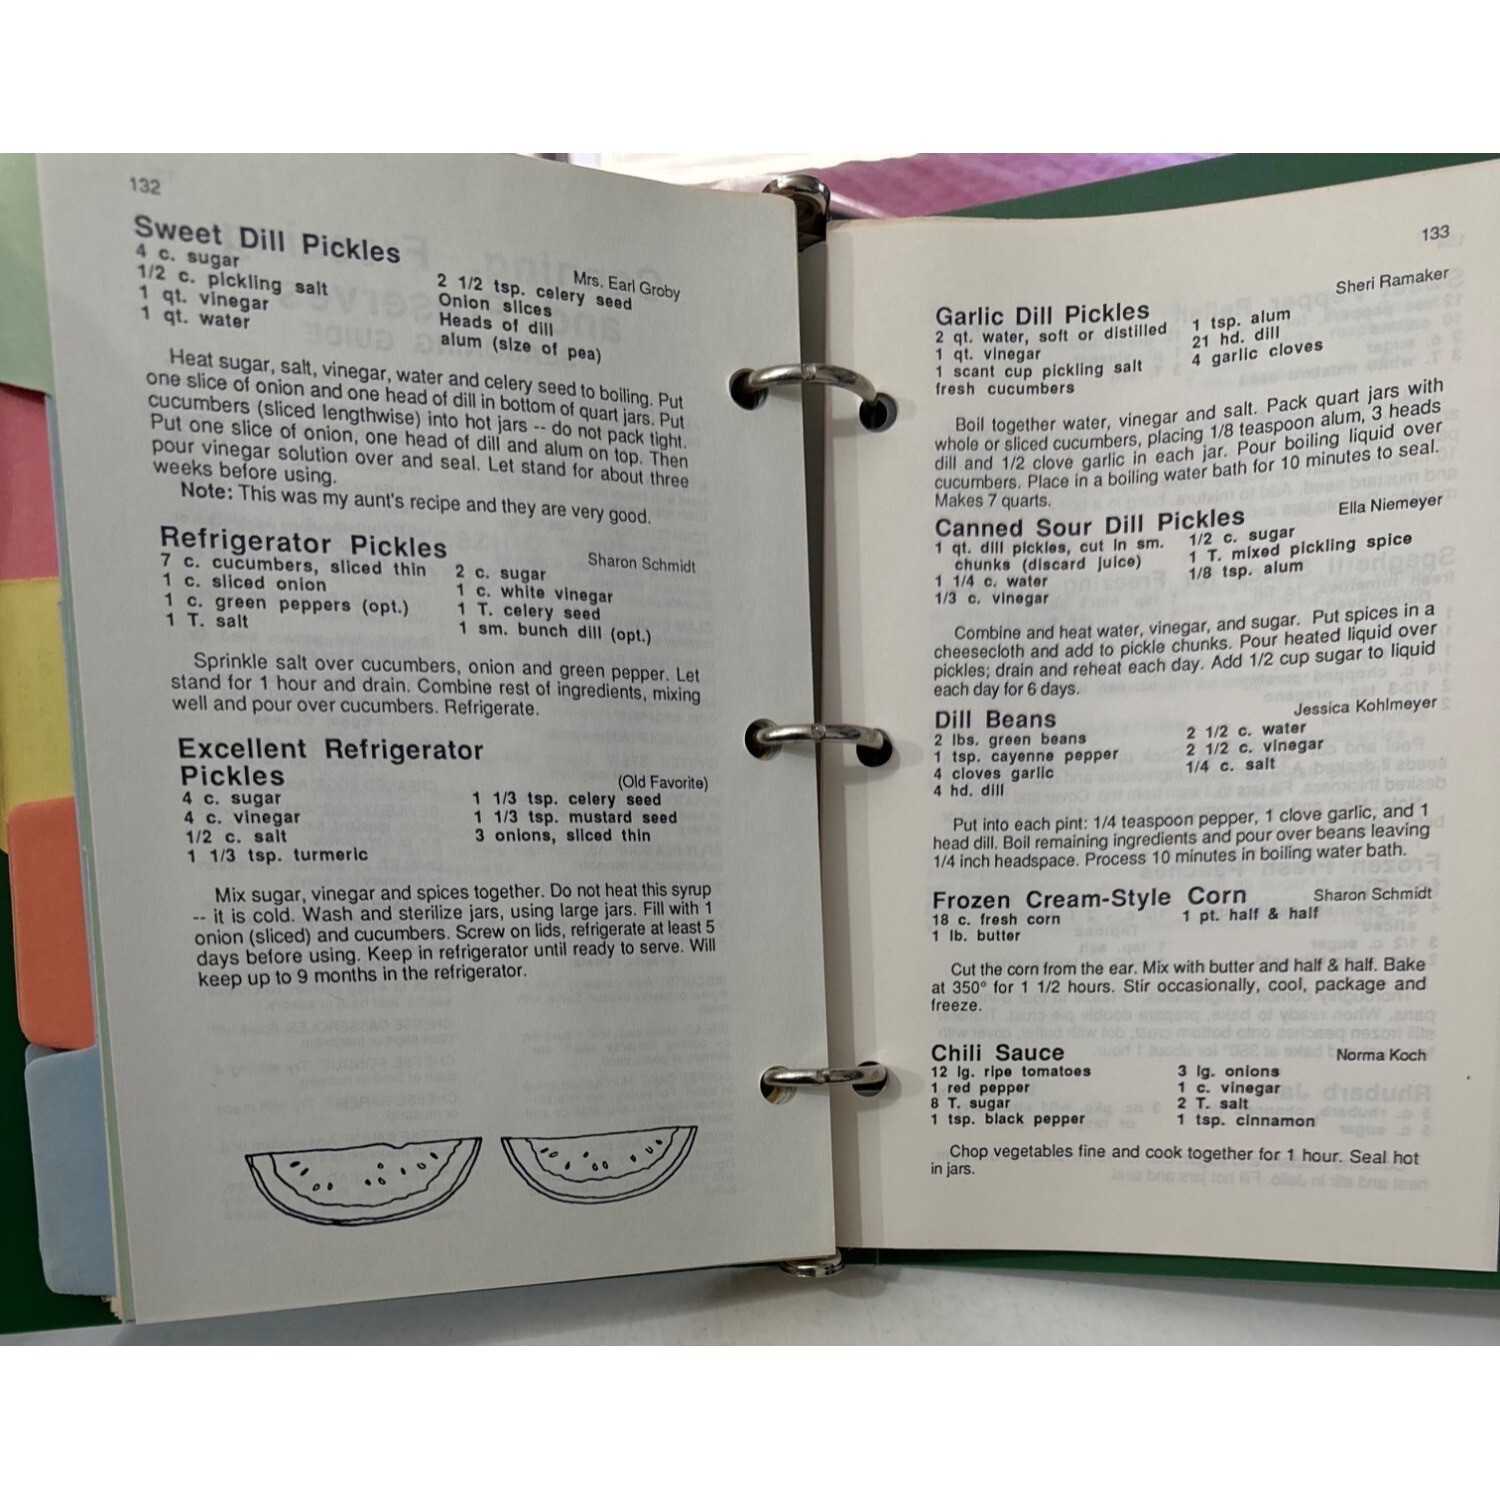 132
Sweet Dill Pickles
Mrs. Earl Groby
4 c. sugar
1/2 c. pickling salt
1 qt. vinegar
1 qt. water
2 1/2 tsp. celery seed
Onion slices
Heads of dill
alum (size of pea)
Heat sugar, salt, vinegar, water and celery seed to boiling. Put
one slice of onion and one head of dill in bottom of quart jars. Put
cucumbers (sliced lengthwise) into hot jars -- do not pack tight.
Put one slice of onion, one head of dill and alum on top. Then
pour vinegar solution over and seal. Let stand for about three
weeks before using.
Note: This was my aunt's recipe and they are very good.
Refrigerator Pickles
Sharon Schmidt
7 c. cucumbers, sliced thin
1 c. sliced onion
1 c. green peppers (opt.)
1 T. salt
2 c. sugar
1 c. white vinegar
1 T. celery seed
1 sm. bunch dill (opt.)
Sprinkle salt over cucumbers, onion and green pepper. Let
stand for 1 hour and drain. Combine rest of ingredients, mixing
well and pour over cucumbers. Refrigerate.
Excellent Refrigerator
Pickles
(Old Favorite)
4 c. sugar
4 c. vinegar
1/2 c. salt
1 1/3 tsp. turmeric
1 1/3 tsp. celery seed
1 1/3 tsp. mustard seed
3 onions, sliced thin
Mix sugar, vinegar and spices together. Do not heat this syrup
-- it is cold. Wash and sterilize jars, using large jars. Fill with 1
onion (sliced) and cucumbers. Screw on lids, refrigerate at least 5
days before using. Keep in refrigerator until ready to serve. Will
keep up to 9 months in the refrigerator.
133
Sheri Ramaker
Garlic Dill Pickles
2 qt. water, soft or distilled
1 qt. vinegar
1 scant cup pickling salt
fresh cucumbers
1 tsp. alum
21 hd. dill
4 garlic cloves
Boil together water, vinegar and salt. Pack quart jars with
whole or sliced cucumbers, placing 1/8 teaspoon alum, 3 heads
dill and 1/2 clove garlic in each jar. Pour boiling liquid over
cucumbers. Place in a boiling water bath for 10 minutes to seal.
Makes 7 quarts.
Canned Sour Dill Pickles
Ella Niemeyer
1 qt. dill pickles, cut in sm.
chunks (discard juice)
1 1/4 c. water
1/3 c. vinegar
1/2 c. sugar
1 T. mixed pickling spice
1/8 tsp. alum
Combine and heat water, vinegar, and sugar. Put spices in a
cheesecloth and add to pickle chunks. Pour heated liquid over
pickles; drain and reheat each day. Add 1/2 cup sugar to liquid
each day for 6 days.
Dill Beans
Jessica Kohlmeyer
2 lbs. green beans
1 tsp. cayenne pepper
4 cloves garlic
4 hd. dill
2 1/2 c. water
2 1/2 c. vinegar
1/4 c. salt
Put into each pint: 1/4 teaspoon pepper, 1 clove garlic, and 1
head dill. Boil remaining ingredients and pour over beans leaving
1/4 inch headspace. Process 10 minutes in boiling water bath.
Frozen Cream-Style Corn
Sharon Schmidt
18 c. fresh corn
1 lb. butter
1 pt. half & half
Cut the corn from the ear. Mix with butter and half & half. Bake
at 350° for 1 1/2 hours. Stir occasionally, cool, package and
freeze.
Chili Sauce
Norma Koch
12 lg. ripe tomatoes
1 red pepper
8 T. sugar
1 tsp. black pepper
3 lg. onions
1 c. vinegar
2 T. salt
1 tsp. cinnamon
Chop vegetables fine and cook together for 1 hour. Seal hot
in jars.